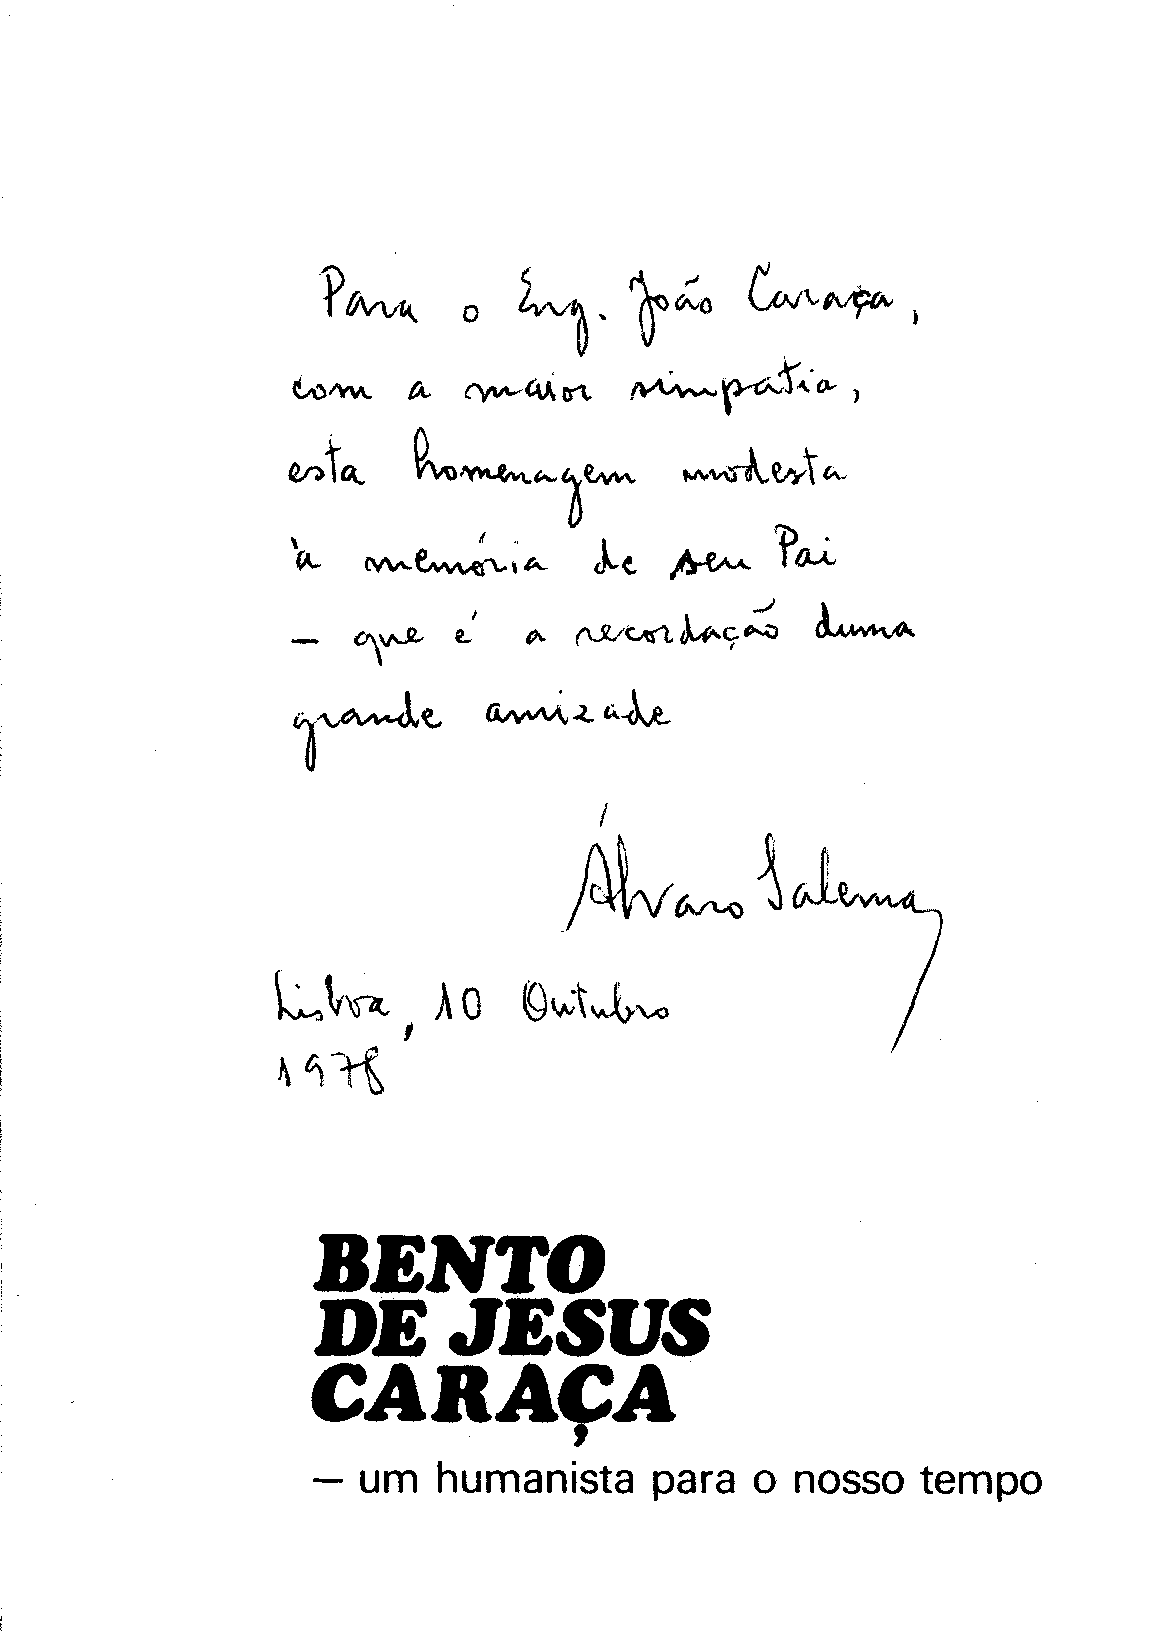 Para o Eng. João Caraça,
com a maior simpatia,
esta homenagem modesta
à memória de seu Pai
— que é a recordação duma
grande amizade
Álvaro Salema
Lisboa, 10 Outubro
1978
BENTO
DE JESUS
CARAÇA
— um humanista para o nosso tempo